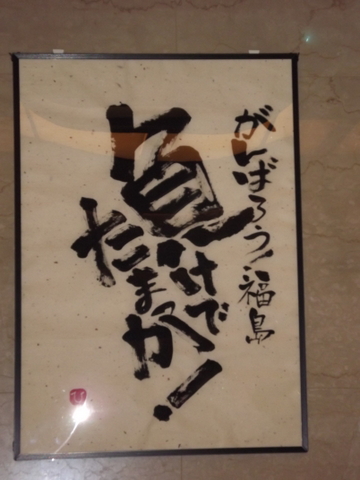 がんばろう！福島
負けで
たまっか！
ひ